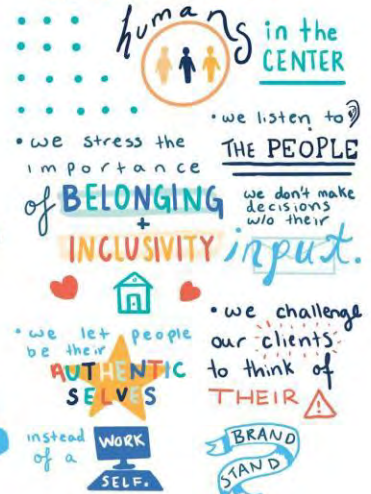 humans in the
CENTER
• we stress the
importance
of BELONGING
+
INCLUSIVITY
• we listen to
THE PEOPLE
we don't make
decisions
w/o their
input.
• we let people
be their
AUTHENTIC
SELVES
instead
of a
WORK
SELF.
• we challenge
our clients
to think of
THEIR
BRAND
STAND